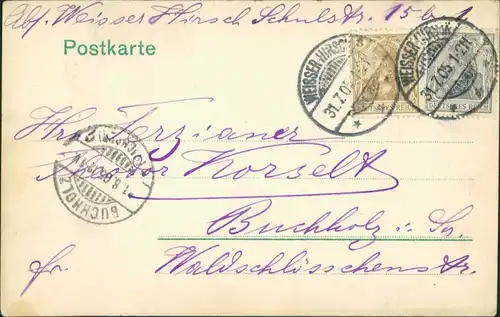 Abs. Weisser Hirsch Schulstr. 15b I
Postkarte
WEISSER HIRSCH
31.7.05.
WEISSER HIRSCH
31.7.05. 1-2N
DEUTSCHES REICH
DEUTSCHES REICH
Hrn Terzianer
Theodor Korselt
BUCHHOLZ
1.8.05
Buchholz i. Sa
fr. Waldschlösschenstr.